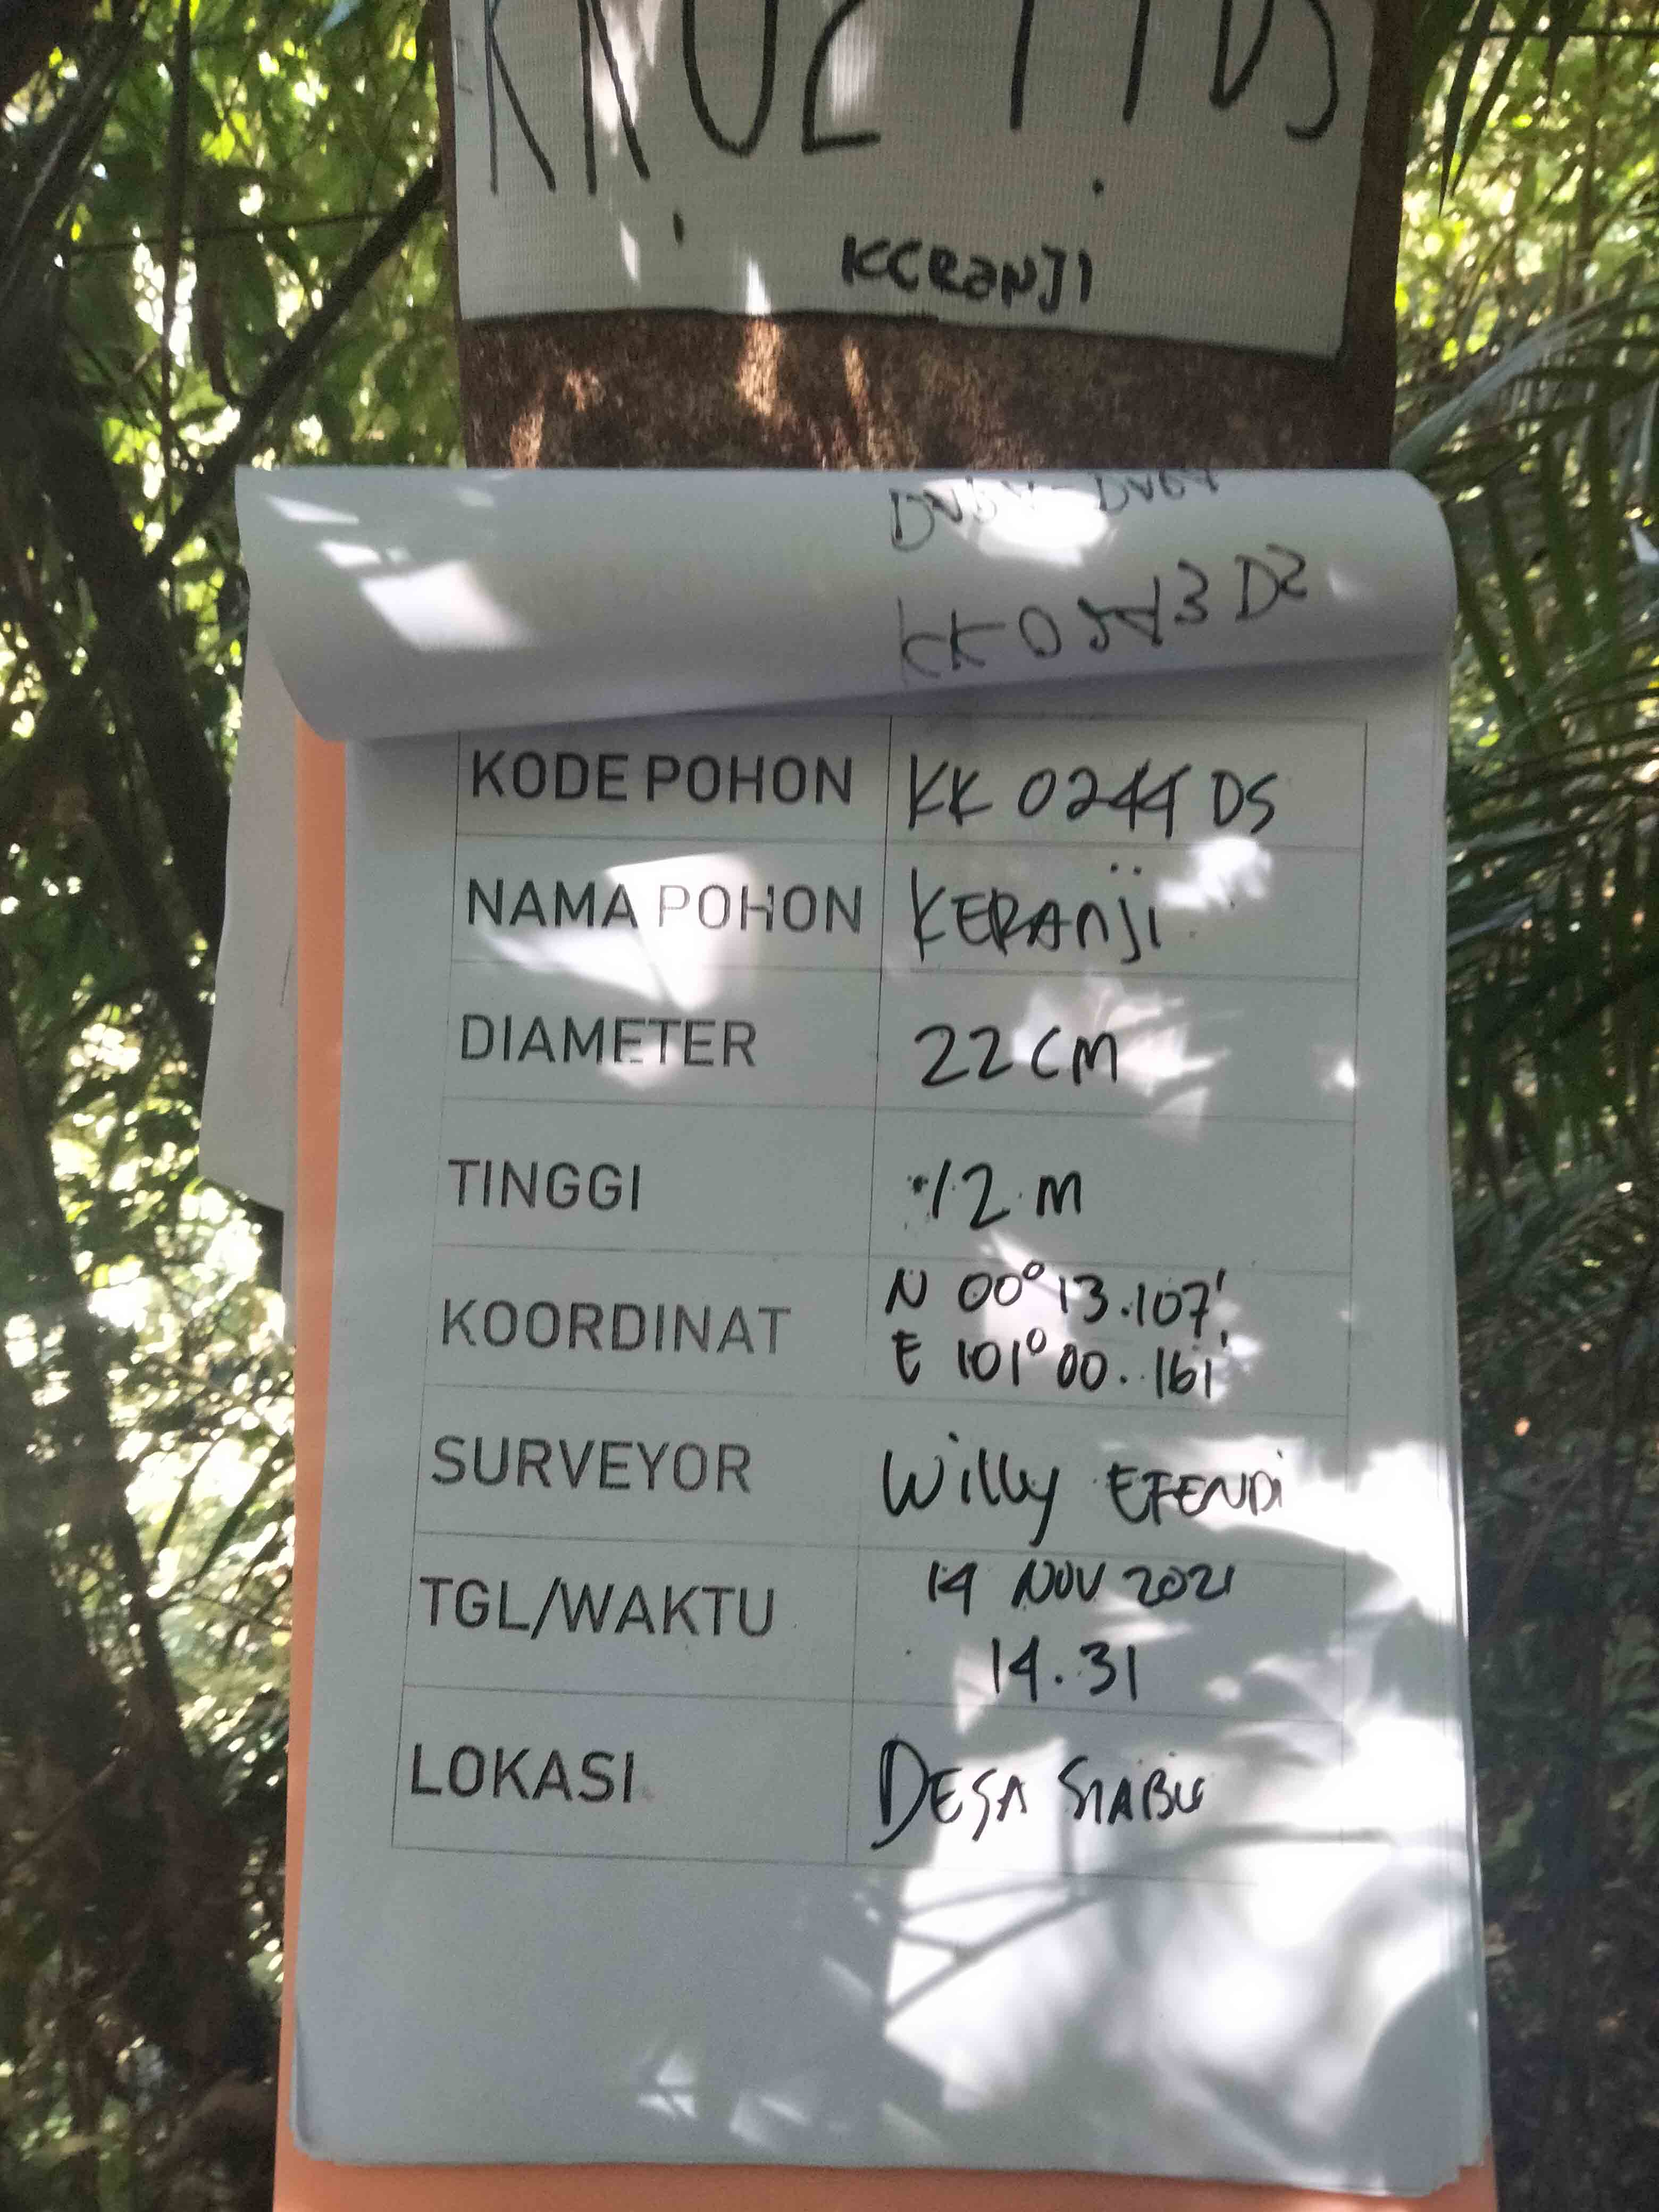 KCRANJI
KODE POHON KK 0244 DS
NAMA POHON KERANJI
DIAMETER 22 CM
TINGGI 12 M
KOORDINAT N 00° 13.107'
E 101° 00.161'
SURVEYOR Willy EFENDI
TGL/WAKTU 14 NOV 2021
14.31
LOKASI DESA SIABU